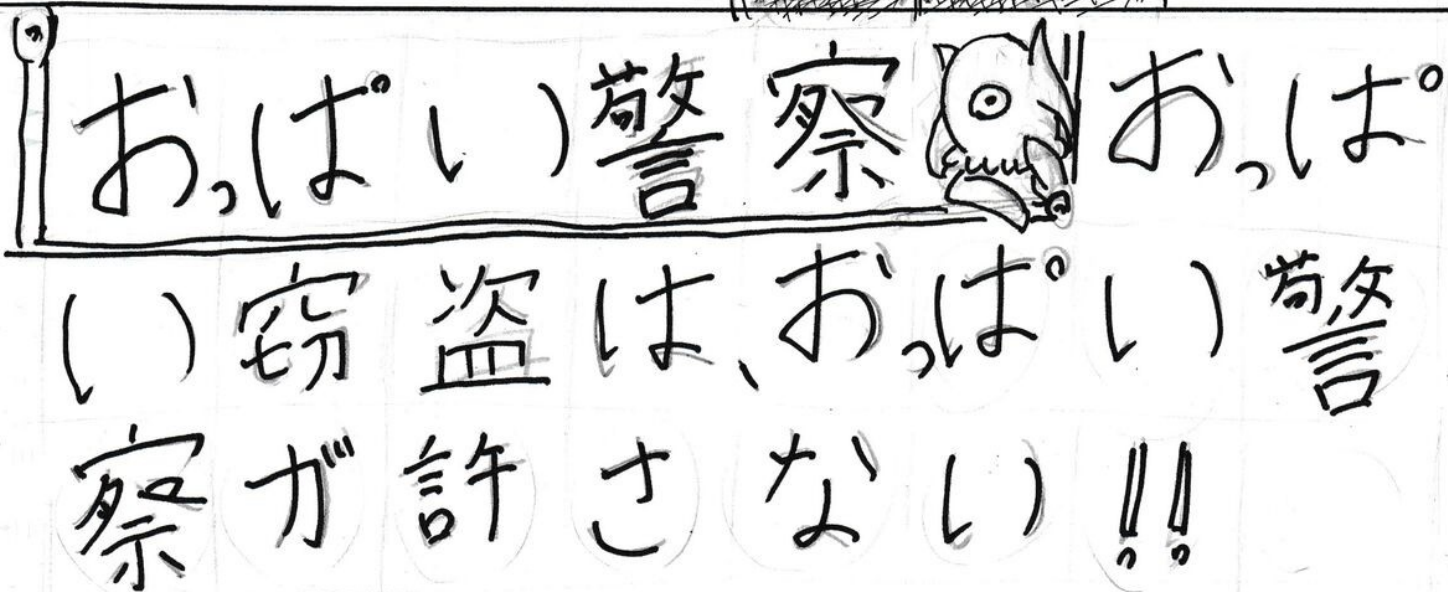 おっぱい警察 おっぱ
い窃盗は、おっぱい警
察が許さない!!